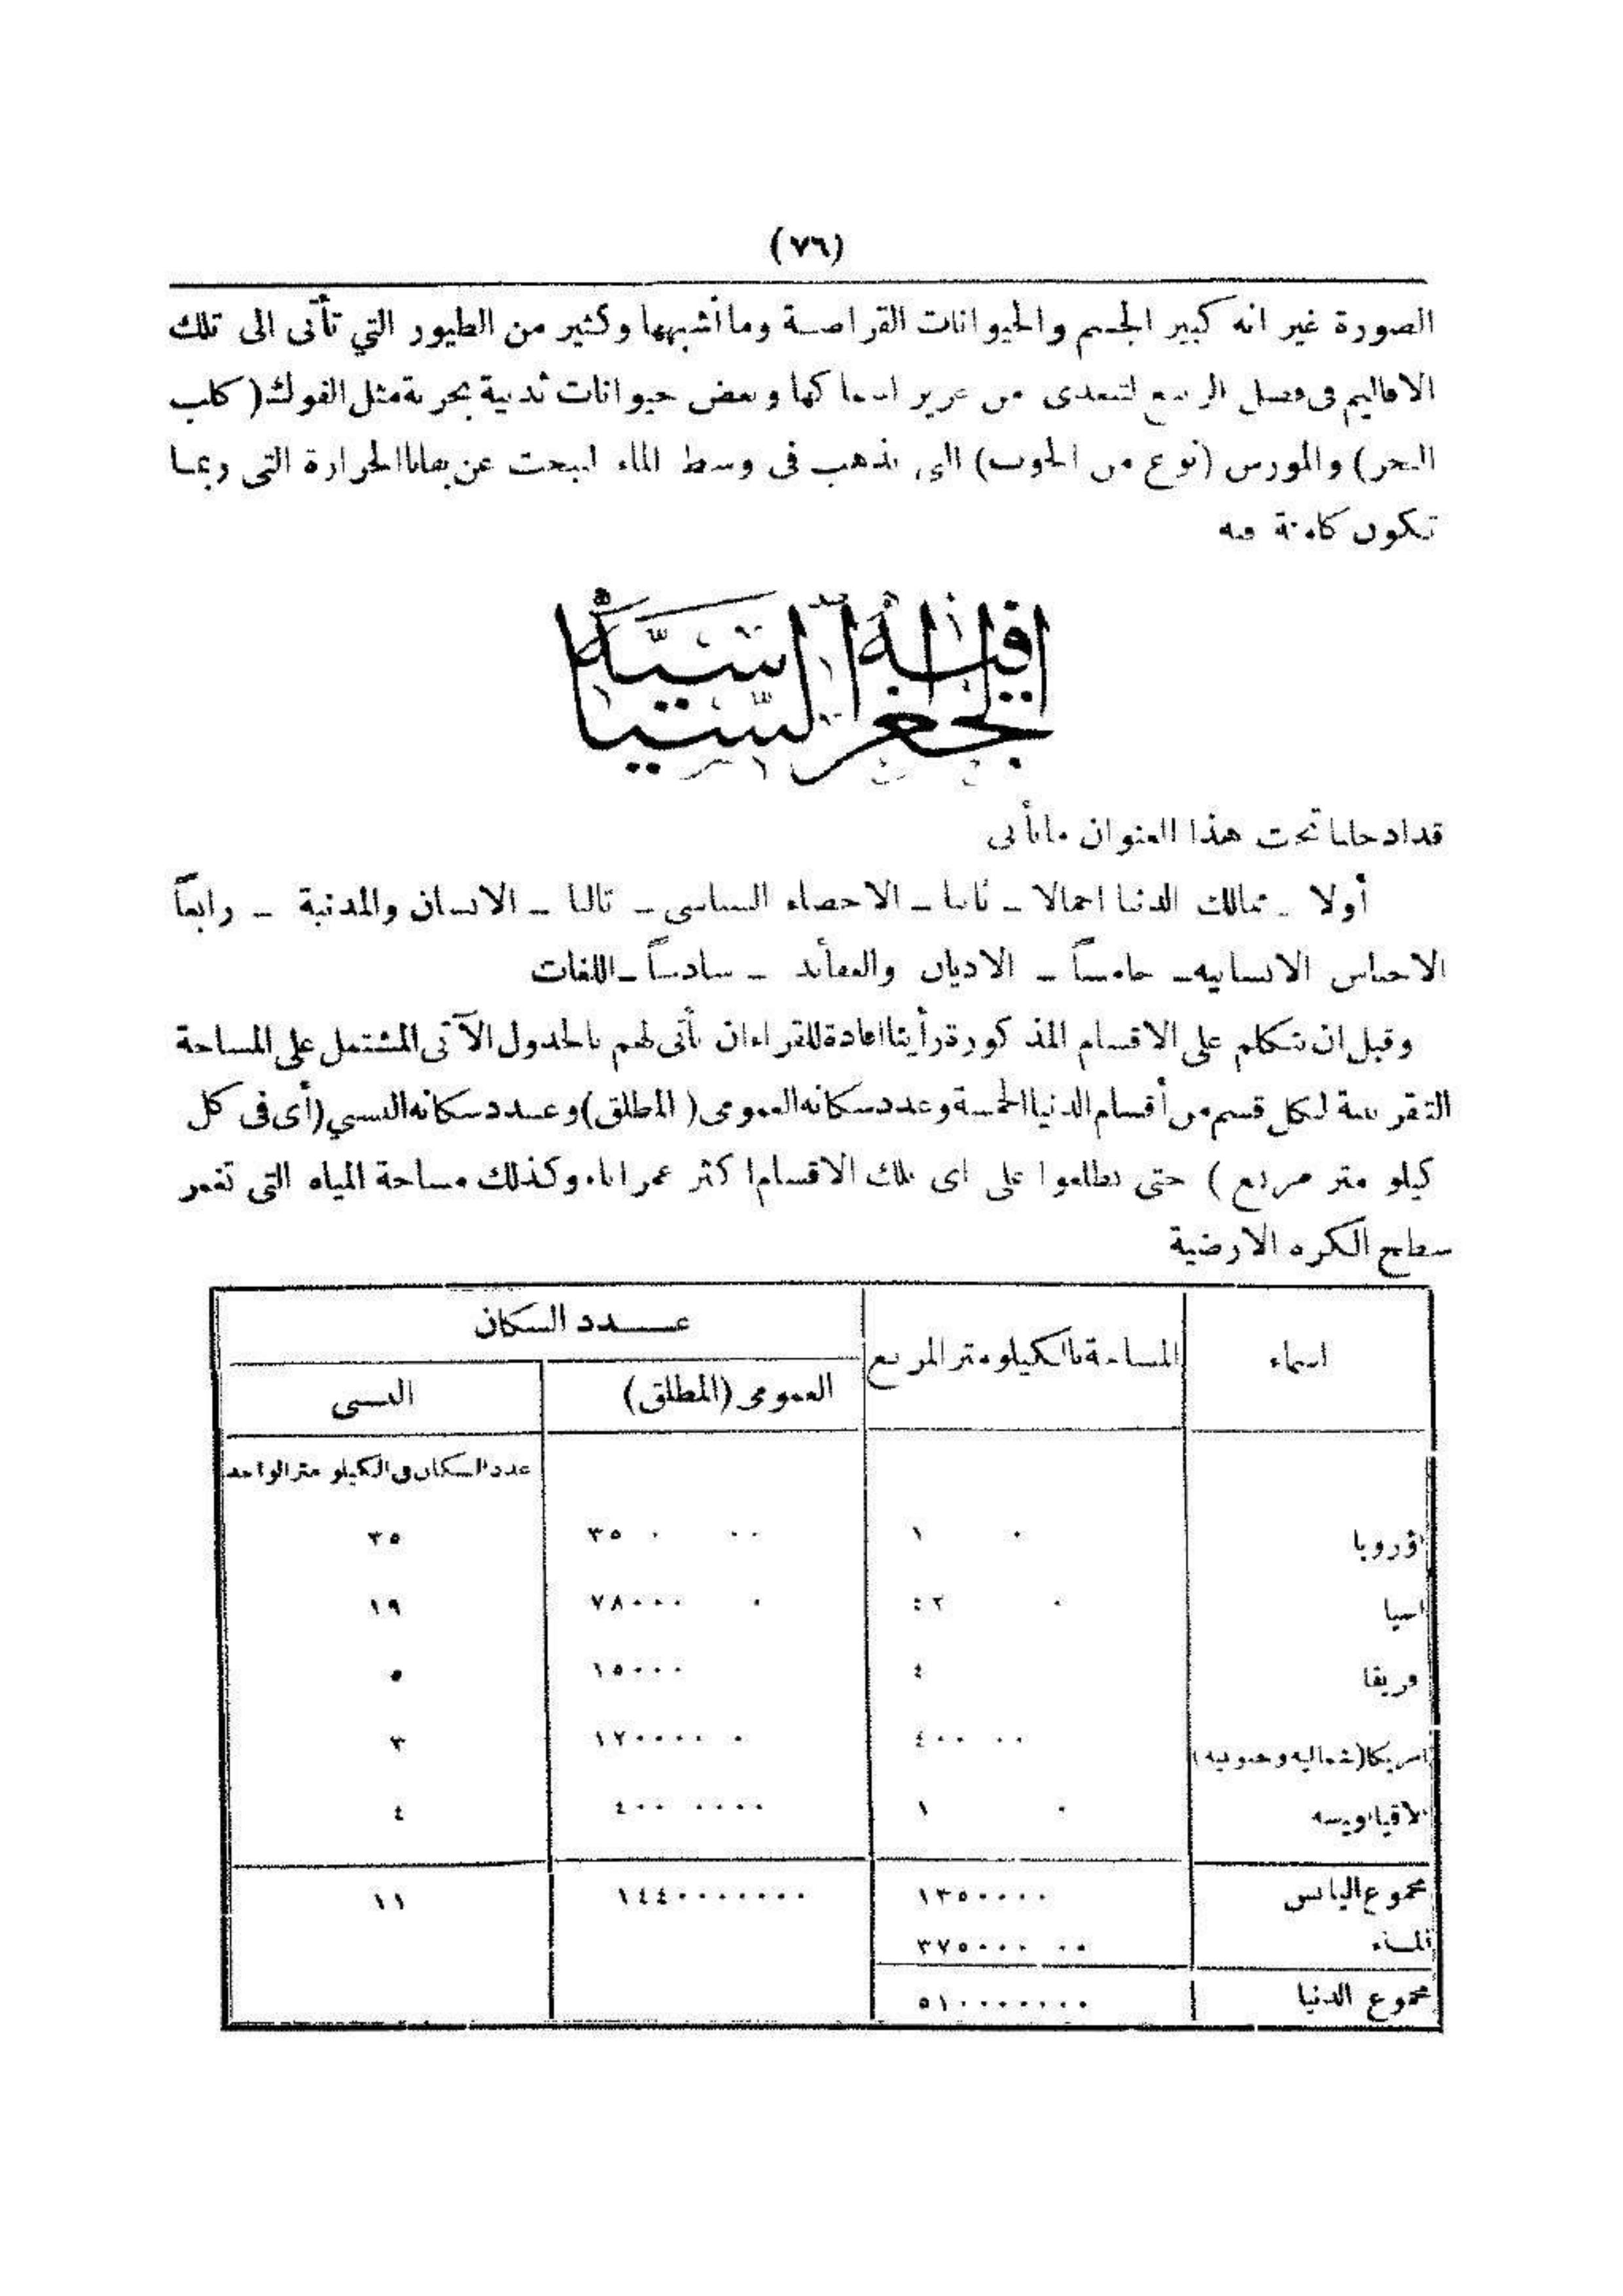 (٧٦)
الصورة غير انه كبير الجسم والحيوانات القراضة وما أشبهها وكثير من الطيور التي تأتى الى تلك
الاقاليم فى فصل الربيع لتتغذى من غزير اسماكها وبعض حيوانات ثديية بحرية مثل الفوك (كلب
البحر) والمورس (نوع من الحوت) التى تذهب فى وسط الماء لتبحث عن بقايا الحرارة التى ربما
تكون كامنة فيه
الجغرافية السياسية
قد ادخلنا تحت هذا العنوان ما يأتى
أولا - ممالك الدنيا اجمالا - ثانيا - الاحصاء السياسى - ثالثا - الانسان والمدنية - رابعاً
الاجناس الانسانيه - خامساً - الاديان والعقائد - سادساً - اللغات
وقبل ان نتكلم على الاقسام المذكورة رأينا افادة للقراء ان نأتى لهم بالجدول الآتى المشتمل على المساحة
التقريبية لكل قسم من أقسام الدنيا الخمسة وعدد سكانه العمومى (المطلق) وعدد سكانه النسبي (أى فى كل
كيلو متر مربع) حتى يطلعوا على اى تلك الاقسام اكثر عمرانا، وكذلك مساحة المياه التى تغمر
سطح الكره الارضية
اسماء المساحة بالكيلومتر المربع عدد السكان
العمومى (المطلق) النسبى
عدد السكان فى الكيلو متر الواحد
اوروبا ٣٥
اسيا ١٩
افريقا ٥
امريكا (شماليه وجنوبيه) ٣
الاقيانوسيه ٤
مجموع اليابس ١٤٤٠٠٠٠٠٠٠ ١١
الماء
مجموع الدنيا ٥١٠٠٠٠٠٠٠